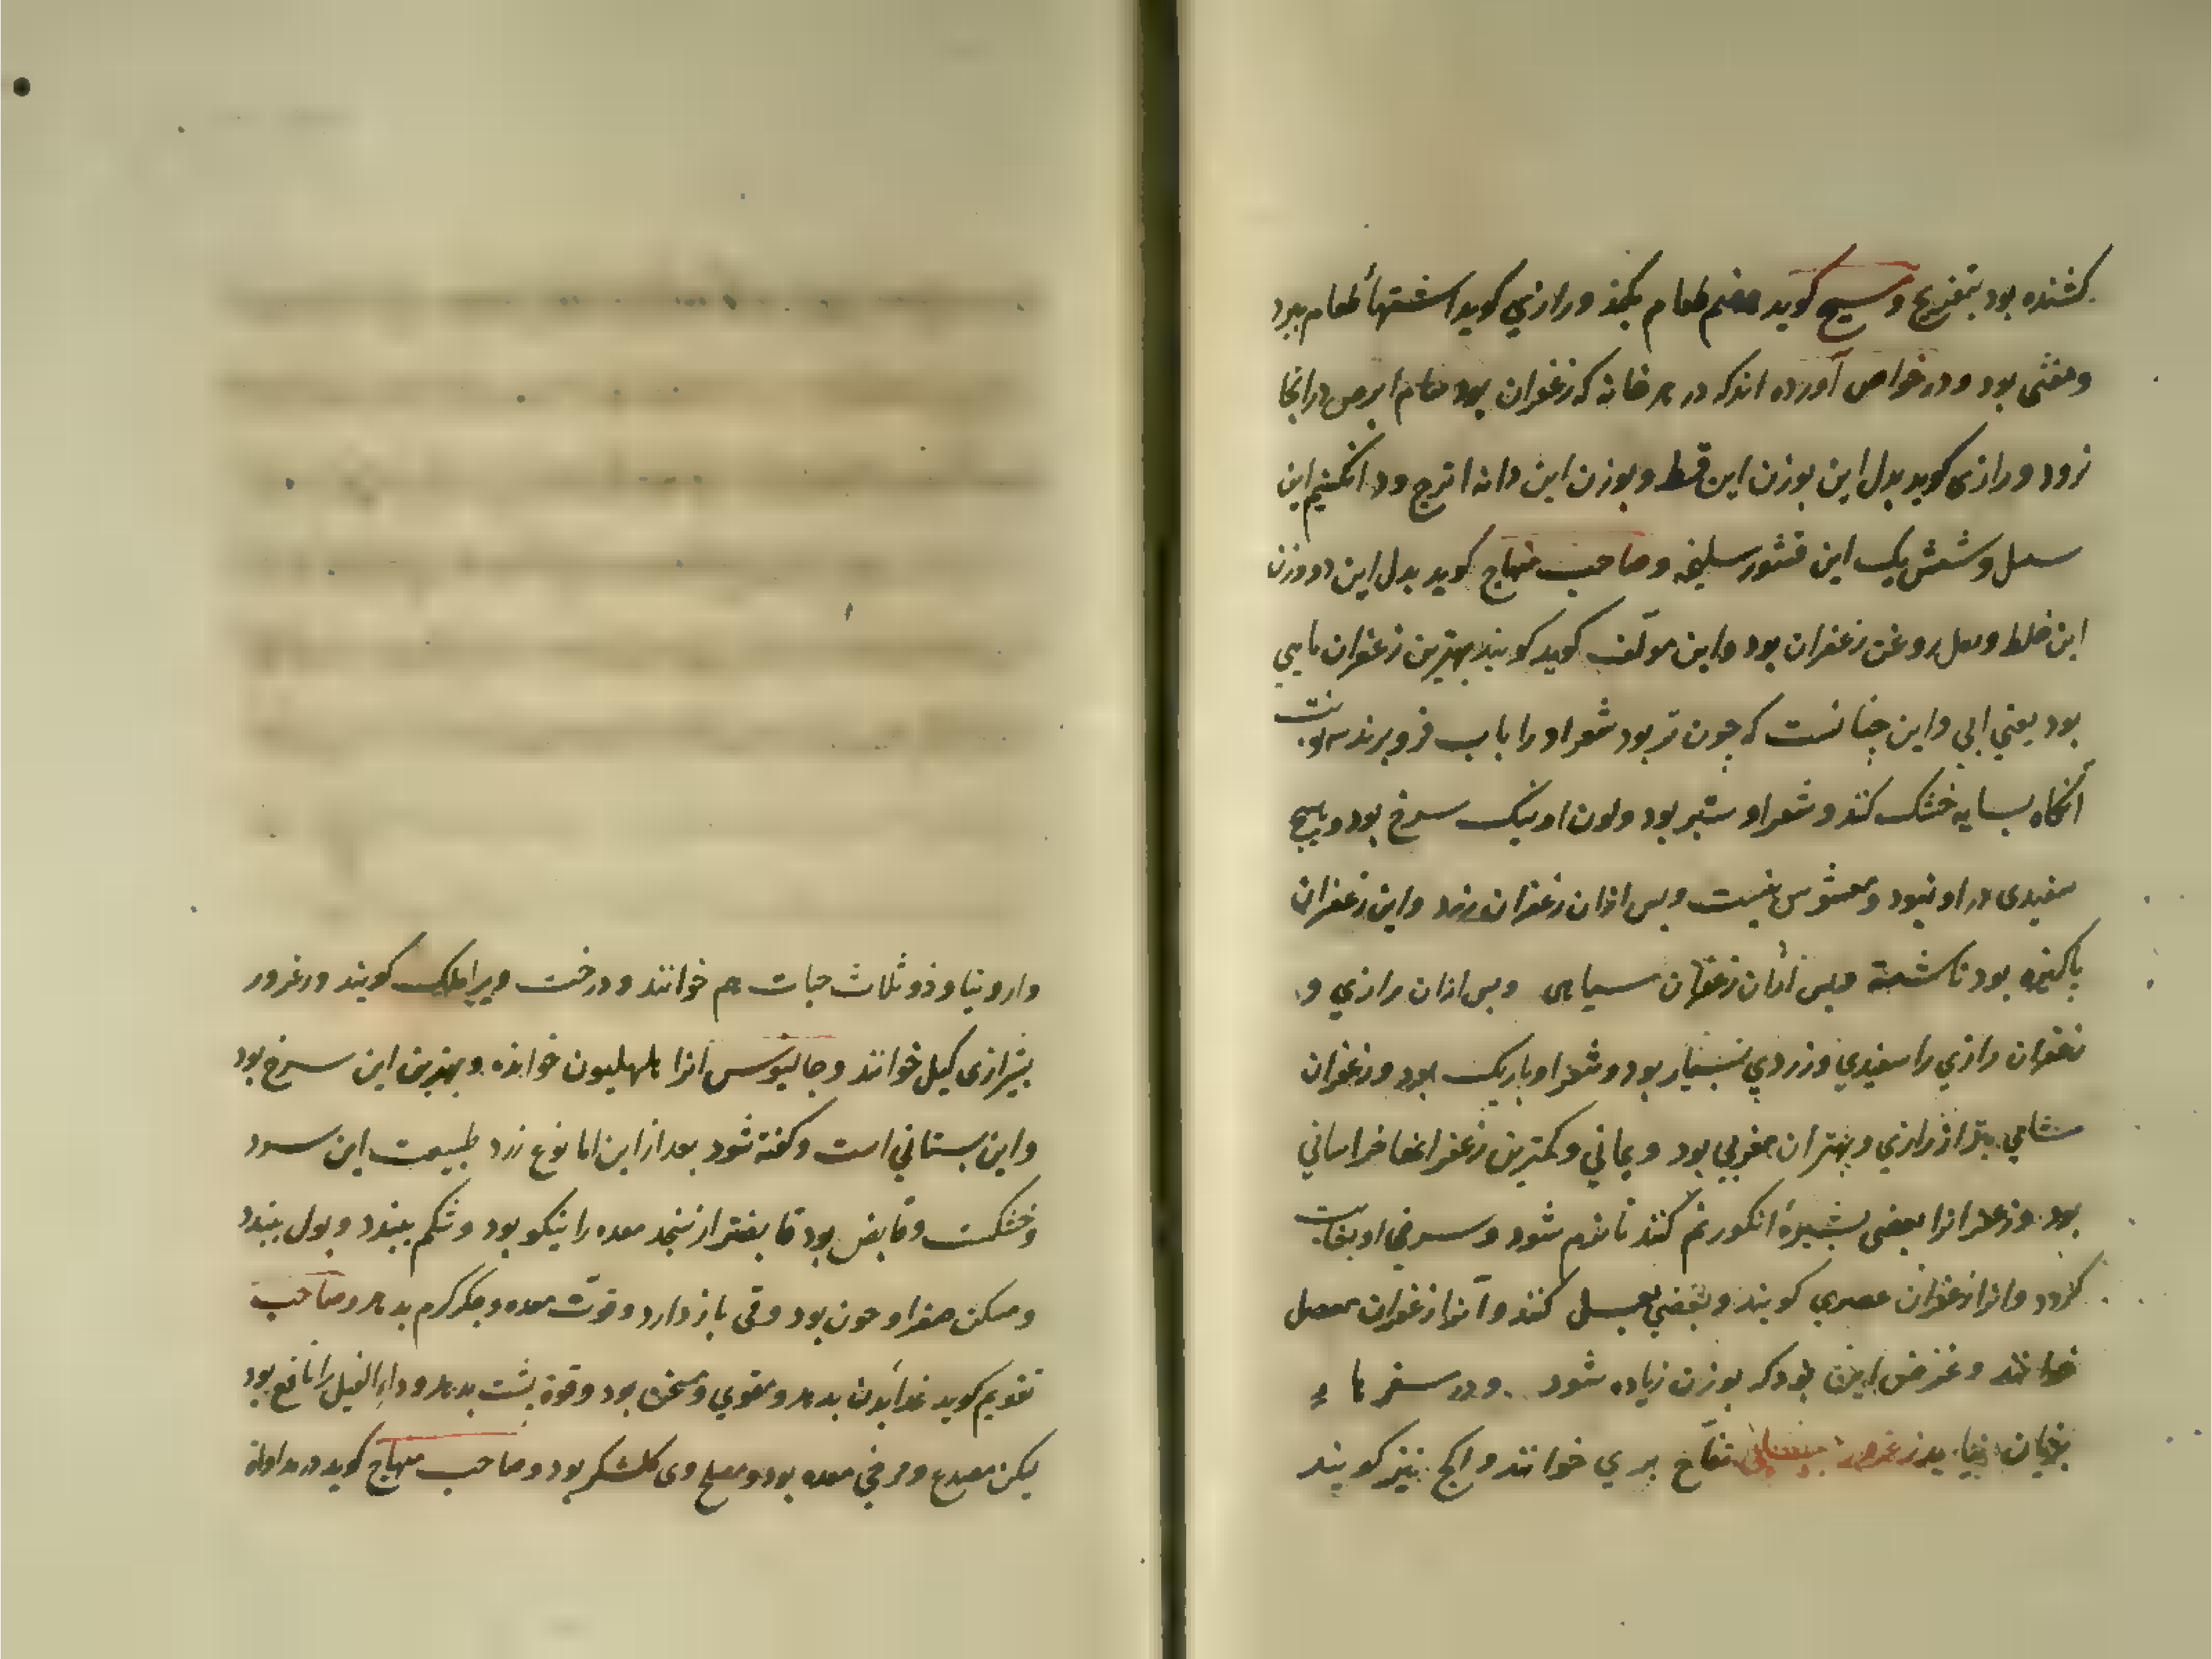 کشنده بود بتفریح و مسیح کوید هضم طعام بکند و رازي کوید اشتهاٴ طعام ببرد
و مغثی بود و در خواص آورده اند که در هر خانه که زعفران بود سام ابرص درانجا
نرود و رازی کوید بدل این بوزن این قسط و بوزن این دانه اترج و دانکنیم این
سنبل و شش یک این قشور سلیخه و صاحب منهاج کوید بدل این دو وزن
این خلط و بدل روغن زعفران بود و این مولف کوید کویند بهترین زعفران مایي
بود یعني ابي و این چنانست که چون تر بود شعر او را باب فرو برند سه نوبت
آنکاه بسایه خشک کنند و شعر او ستبر بود و لون او نیک سرخ بود و هیچ
سفیدی در او نبود و مغشوس نیست و پس ازان زعفران و این زعفران
پاکیزه بود ناشسته و پس ازان زعفران سیاهی و پس ازان رازي و
زعفران رازي را سفیدي و زردي بسیار بود و شعر او باریک بود و زعفران
شامي بتر از رازي و بهتر ان مغربي بود و یماني و کمترین زعفرانها خراساني
بود و زعفرانرا بعضی بشیرهٔ انکور نم کنند تا نرم شود و سرخي او بغایت
کردد و انرا زعفران عصري کویند و بعضي بعسل کنند و آنرا زعفران معسل
خوانند و غرض این بود که بوزن زیاده شود و در سفرها ء
بزیان نیاید زعرور تفاح بري خوانند و اکج نیز کویند
دارونیا و ذو ثلاث حبات هم خوانند و درخت ویرا کویند و زعرور
بشیرازی کیل خوانند و جالینوس انرا خوانده و بهترین این سرخ بود
و این بستاني است و کفته شود بعد از این اما نوع زرد طبیعت این سرد
و خشکست و قابض بود قابضتر از سنجد معده را نیکو بود و شکم ببندد و بول ببندد
و مسکن صفرا و خون بود و قی باز دارد و قوّت معده و جکر کرم بدهد و صاحب
تقویم کوید غداٴ بدن بدهد و مقوي و مسخن بود و قوة پشت بدهد و داء الفیل را نافع بود
لیکن مصدع و مرخي معده بود و مصلح وی کلشکر بود و صاحب منهاج کوید در مداواة